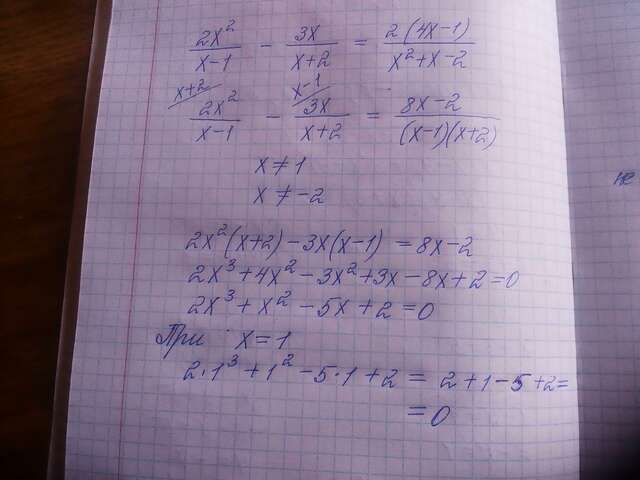 2x²/(x-1) - 3x/(x+2) = 2(4x-1)/(x²+x-2)
x+2 x-1
2x²/(x-1) - 3x/(x+2) = (8x-2)/((x-1)(x+2))
x≠1
x≠-2
не
2x²(x+2)-3x(x-1)=8x-2
2x³+4x²-3x²+3x-8x+2=0
2x³+x²-5x+2=0
При x=1
2·1³+1²-5·1+2=2+1-5+2=
=0